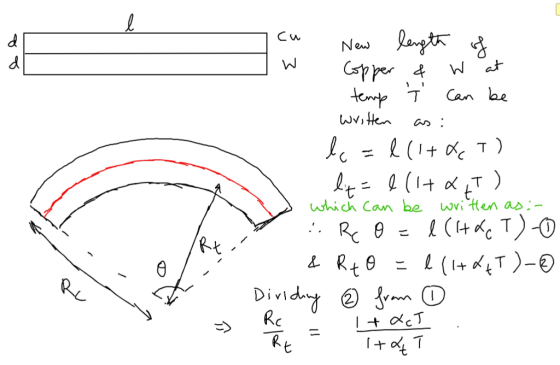 l
d
Cu
d
W
New length of
Copper & W at
temp 'T' Can be
written as:
l_c = l (1 + α_c T)
l_t = l (1 + α_t T)
which can be written as:-
∴ R_c θ = l (1 + α_c T) - ①
& R_t θ = l (1 + α_t T) - ②
R_c
θ
R_t
Dividing ② from ①
⇒ R_c / R_t = (1 + α_c T) / (1 + α_t T)